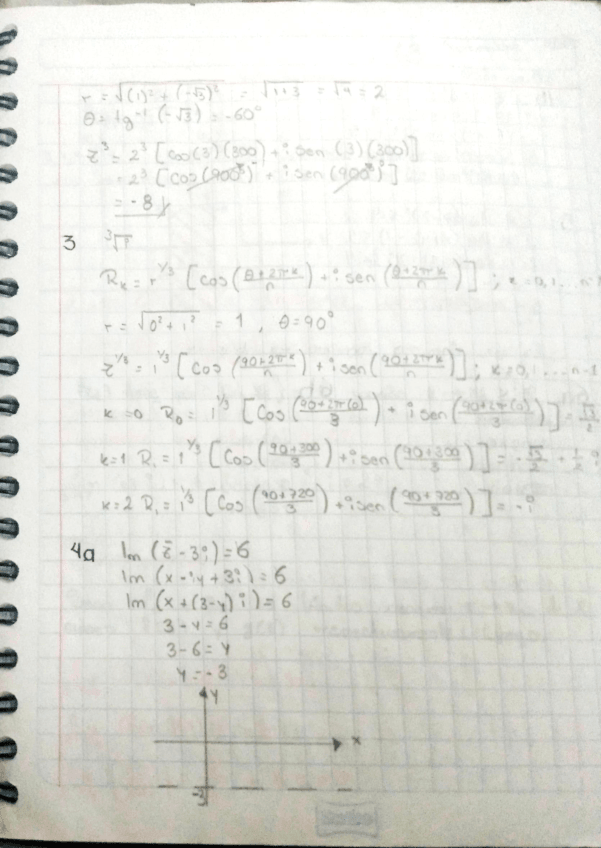 r = √((1)² + (-√3)²) = √(1+3) = √4 = 2
θ = tg⁻¹ (-√3) = -60°
z³ = 2³ [cos (3)(300) + i sen (3)(300)]
= 2³ [cos (900°) + i sen (900°)]
= -8
3 ³√i
Rκ = r^(1/3) [cos((θ+2πκ)/n) + i sen((θ+2πκ)/n)] ; κ = 0,1 ... n-1
r = √(0² + 1²) = 1 , θ = 90°
z^(1/3) = 1^(1/3) [cos((90+2πκ)/n) + i sen((90+2πκ)/n)] ; κ = 0,1 ... n-1
κ = 0 R₀ = 1^(1/3) [cos((90+2π(0))/3) + i sen((90+2π(0))/3)] = √3/2
κ = 1 R₁ = 1^(1/3) [cos((90+300)/3) + i sen((90+300)/3)] = -√3/2 + 1/2 i
κ = 2 R₁ = 1^(1/3) [cos((90+720)/3) + i sen((90+720)/3)] = -i
4a Im (z̄ - 3i) = 6
Im (x - iy + 3i) = 6
Im (x + (3-y) i) = 6
3 - y = 6
3 - 6 = y
y = -3
y
x
-3